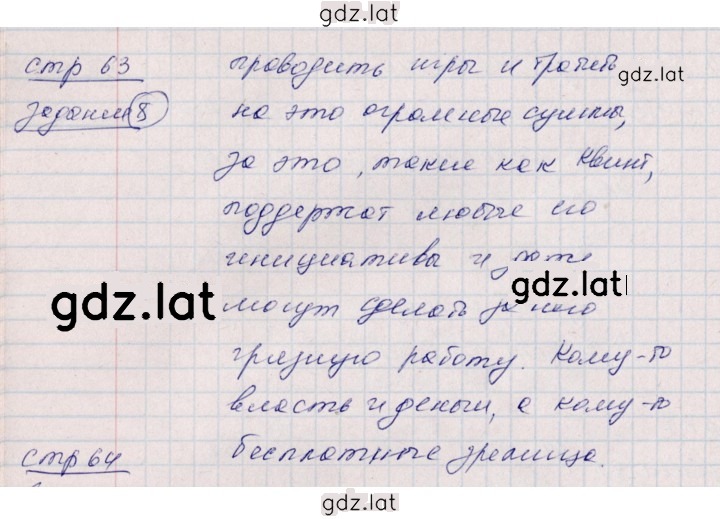 gdz.lat
стр 63
задание 8
проводить игры и тратить
gdz.lat
на это огромные суммы,
за это, такие как Квинт,
поддержат любые его
инициативы и даже
gdz.lat
gdz.lat
могут сделать за него
грязную работу. Кому-то
власть и деньги, а кому-то
бесплатные зрелища.
стр 64
gdz.lat